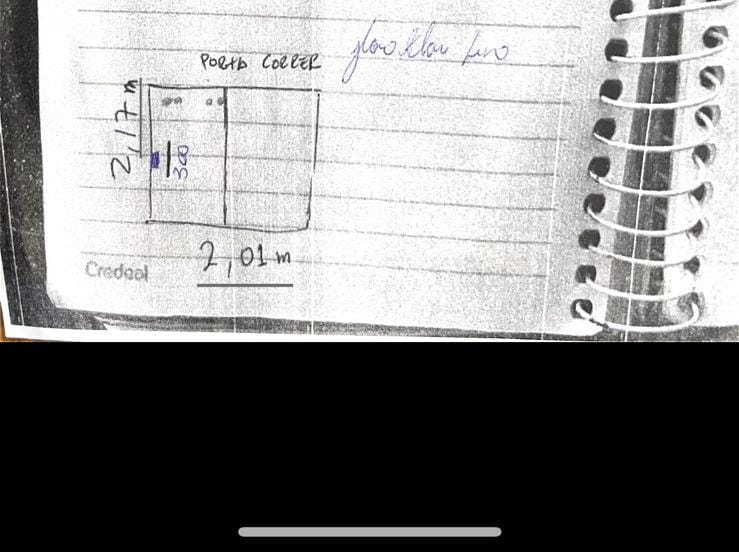 PORTA CORRER
2,17 m
300
2,01 m
Credeal